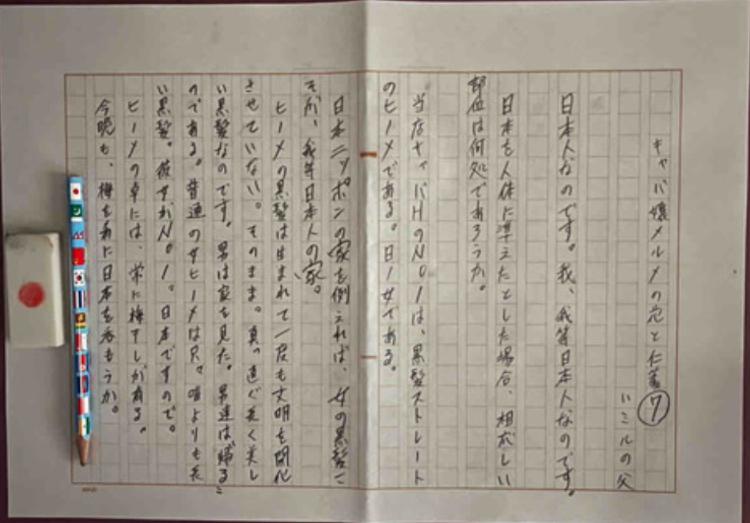 キャバ嬢メルメの穴と仁義⑦
ハミルの父
日本人なのです。我、我等日本人なのです。
日本を人体に準えたとした場合、相応しい
部位は何処であろうか。
当店キャバHのNO1は、黒髪ストレート
のヒーメである。日ー女である。
日本ニッポンの家を例えれば、女の黒髪こ
そが、我等日本人の家。
ヒーメの黒髪は生まれて一度も文明を開化
させていない。そのまま。真っ直ぐ長く美し
い黒髪なのです。男は家を見た。男達は帰るこ
のである。普通の女ヒーメは只々噂よりも長
い黒髪。彼女がNO1。日本ですので。
ヒーメの卓には、常に梅干しが有る。
今晩も、梅を肴に日本を呑もうか。